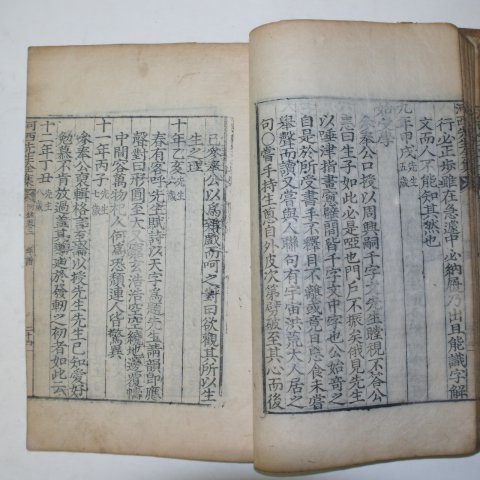 行必正步雖在忽遽中必納屨乃出且能識字解
文而人不能知其然也
九年甲戌 先生五歲
參奉公口授以周興嗣千字文先生瞠視不答公
恚曰生子如此必是啞也門戶不振矣俄見先生
以唾津指畫窓壁間皆千字文中字也公始奇之
自是於所受書手不釋目不離或寫 食未嘗
擧聲而讀又嘗與人聯句有宇宙洪荒大人居之
句○嘗手持生葱自外皮次第劈破至其心而後
已參奉公以爲雜戲而呵之對曰欲觀其所以生
生之理
十年乙亥 先生六歲
春有客呼先生賦詩以天字爲題先生請韻卽應
聲對曰形圓至大又窮玄浩浩空空繞地邊覆幬
中間容萬物杞人何爲恐顚連人皆驚異
十一年丙子 先生七歲
參奉公裒輯格言至論以授先生先生已知愛好
勉慕不肯放過蓋其 於發軔之初者如此云
十二年丁丑 先生八歲
河西先生全集 年譜